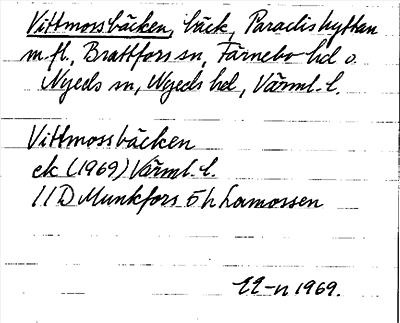 Vittmossbäcken, bäck, Paradishyttan
m.fl., Brattfors sn, Färnebo hd o.
Nyeds sn, Nyeds hd, Värml. l.
Vittmossbäcken
ek (1969) Värml. l.
11D Munkfors 5 h Lamossen
1969.